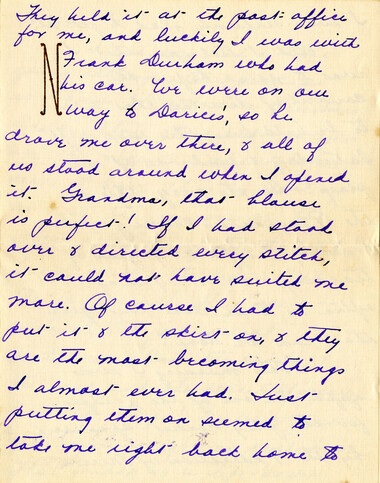 They held it at the post office
for me, and luckily I was with
N
Frank Durham who had
his car. We were on our
way to Darici's, so he
drove me over there, & all of
us stood around when I opened
it. Grandma, that blouse
is perfect! If I had stood
over & directed every stitch,
it could not have suited me
more. Of course I had to
put it & the skirt on, & they
are the most becoming things
I almost ever had. Just
putting them on seemed to
take me right back home to